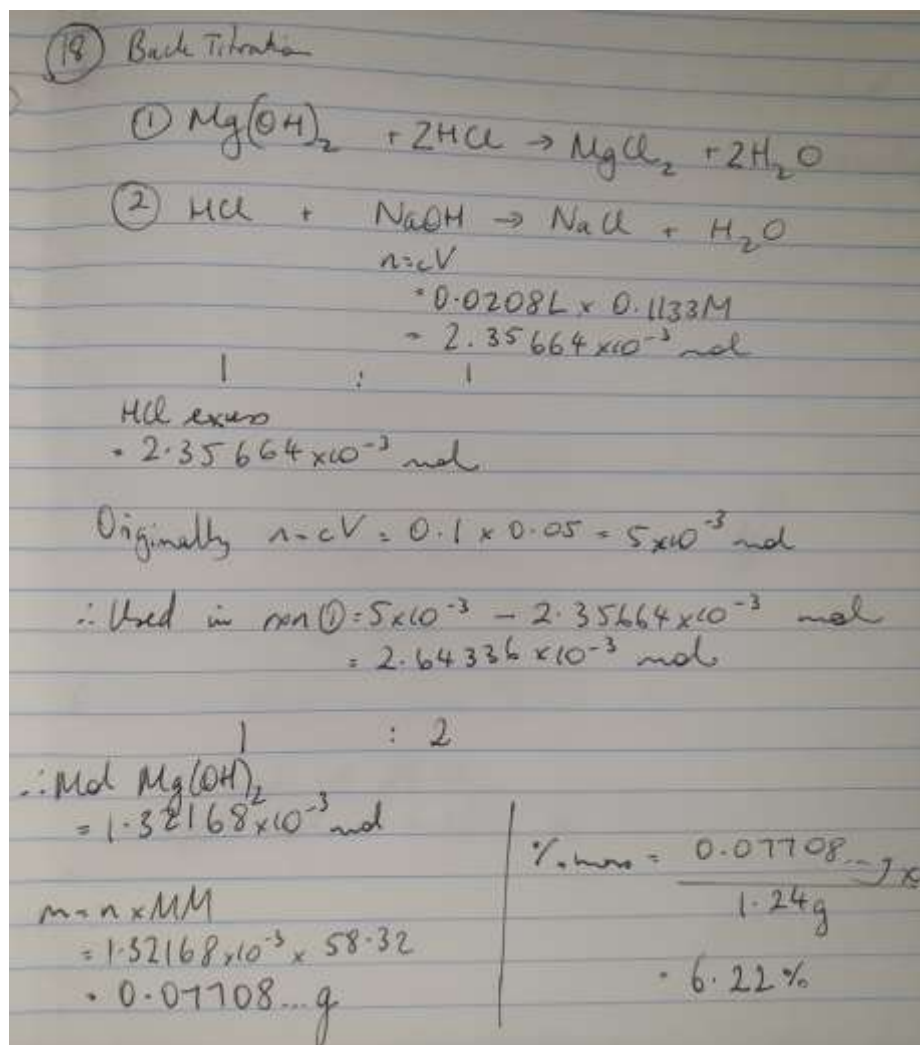 18 Back Titration
① Mg(OH)₂ + 2HCl → MgCl₂ + 2H₂O
② HCl + NaOH → NaCl + H₂O
n=cV
= 0.0208L × 0.1133M
= 2.35664 ×10⁻³ mol
1 : 1
HCl excess
= 2.35664 ×10⁻³ mol
Originally n=cV = 0.1 × 0.05 = 5×10⁻³ mol
∴ Used in rxn ① = 5×10⁻³ − 2.35664 ×10⁻³ mol
= 2.64336 ×10⁻³ mol
1 : 2
∴ Mol Mg(OH)₂
= 1.32168×10⁻³ mol
m = n × MM
= 1.32168×10⁻³ × 58.32
= 0.07708... g
% mass = 0.07708... g ×
1.24g
= 6.22%